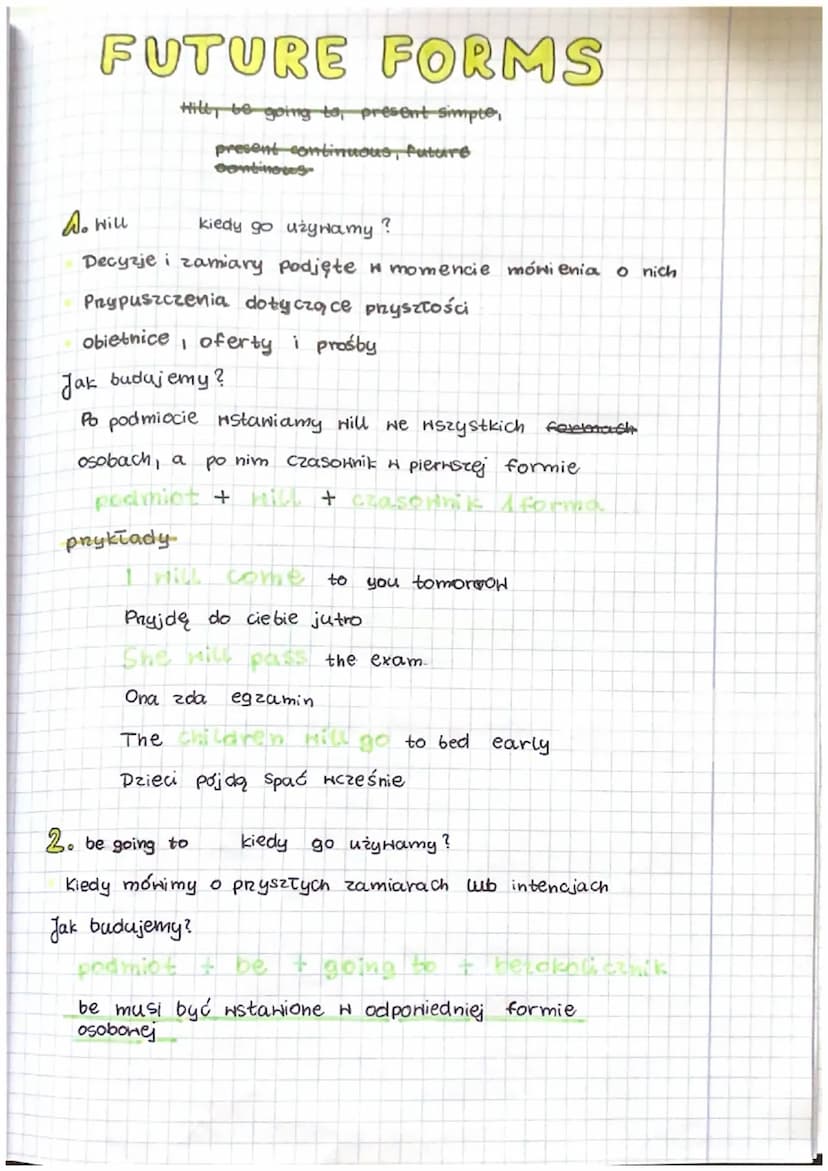 FUTURE FORMS
Will, be going to, present simple,
present continuous, future
continous
1. Will kiedy go używamy?
Decyzje i zamiary podjęte w momencie mówienia o nich
Przypuszczenia dotyczące przyszłości
obietnice, oferty i prośby
Jak budujemy?
Po podmiocie wstawiamy will we wszystkich formach
osobach, a po nim czasownik w pierwszej formie
podmiot + will + czasownik 1 forma
przykłady
I will come to you tomorrow
Przyjdę do ciebie jutro
She will pass the exam.
Ona zda egzamin
The children will go to bed early
Dzieci pójdą spać wcześnie
2. be going to kiedy go używamy?
Kiedy mówimy o przyszłych zamiarach lub intencjach
Jak budujemy?
podmiot + be + going to + bezokolicznik
be musi być wstawione w odpowiedniej formie
osobowej